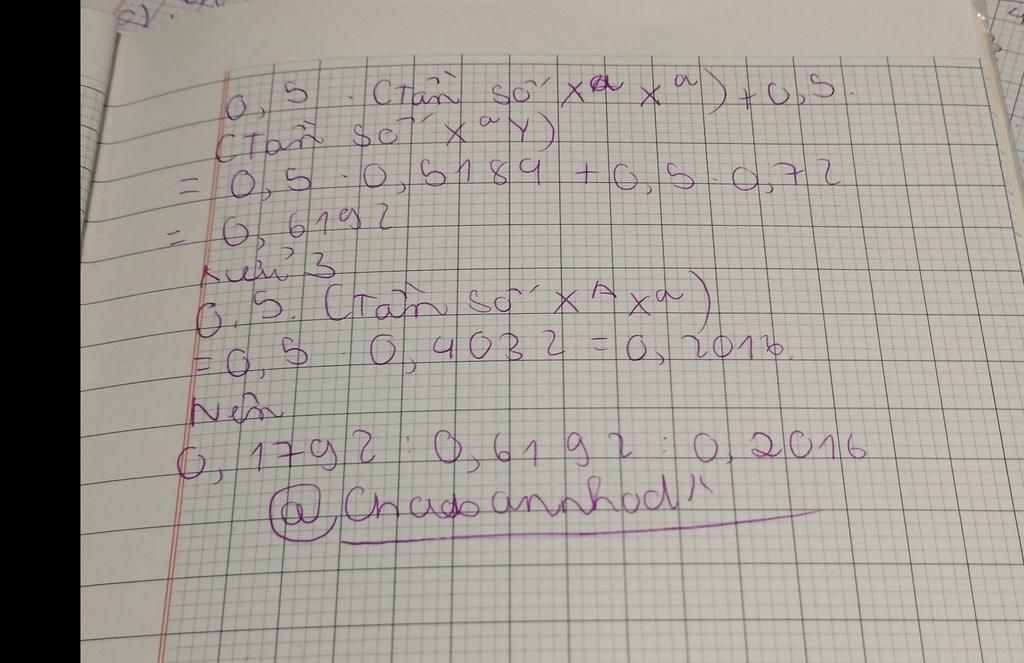 0,5 . (Tần số Xᵃ Xᵃ) + 0,5.
(Tần số XᵃY)
= 0,5 . 0,5184 + 0,5 . 0,72
= 0,6192
Kiểu 3
0,5. (Tần số Xᴬ Xᵃ)
= 0,5 . 0,4032 = 0,2016
Nên
0,1792 : 0,6192 : 0,2016